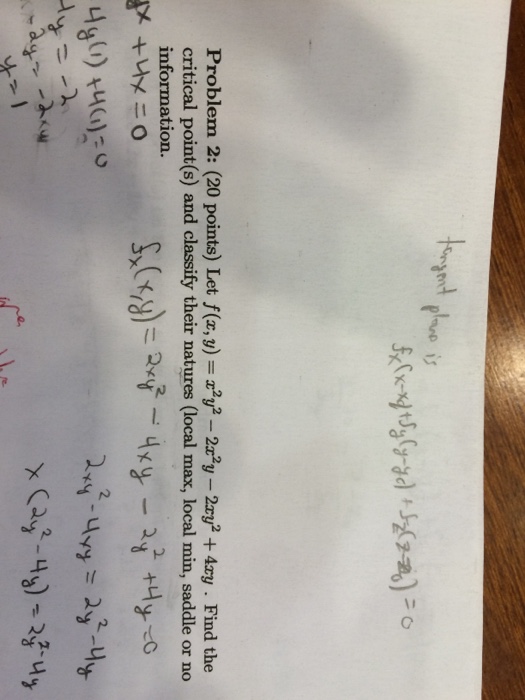 tangent plane is
fx(x-x₀)+fy(y-y₀)+fz(z-z₀)=0
Problem 2: (20 points) Let f(x, y) = x²y² − 2x²y − 2xy² + 4xy . Find the
critical point(s) and classify their natures (local max, local min, saddle or no
information.
x + 4x = 0
fx(x,y) = 2xy² - 4xy - 2y² + 4y = 0
4y(1) + 4(1) = 0
2xy² - 4xy = 2y² - 4y
4y = -2
x(2y² - 4y) = 2y² - 4y
y = 1